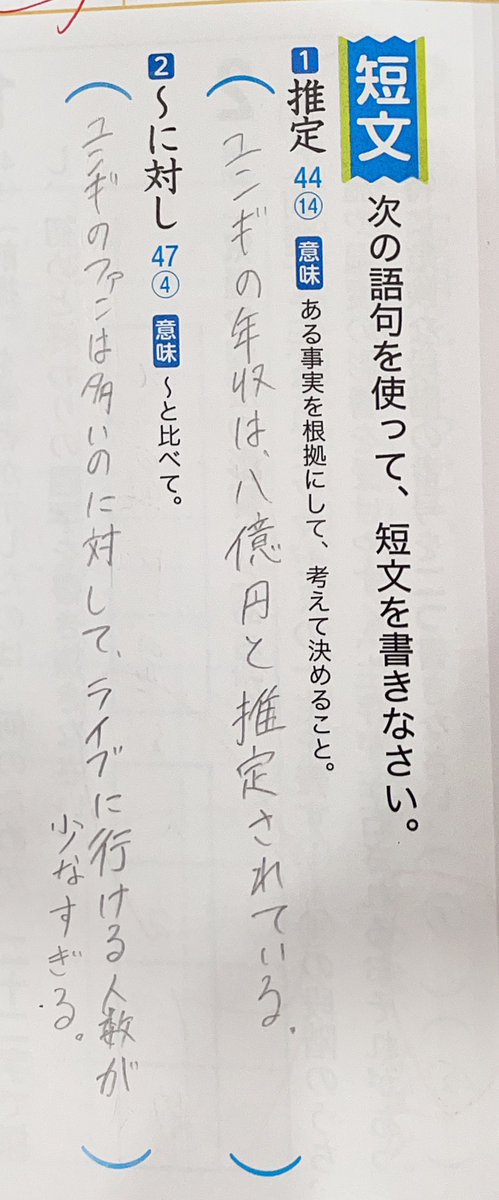 短文
次の語句を使って、短文を書きなさい。
1 推定 44⑭ 意味 ある事実を根拠にして、考えて決めること。
（ユンギの年収は、八億円と推定されている。）
2 〜に対し 47④ 意味 〜と比べて。
（ユンギのファンは多いのに対して、ライブに行ける人数が
少なすぎる。）